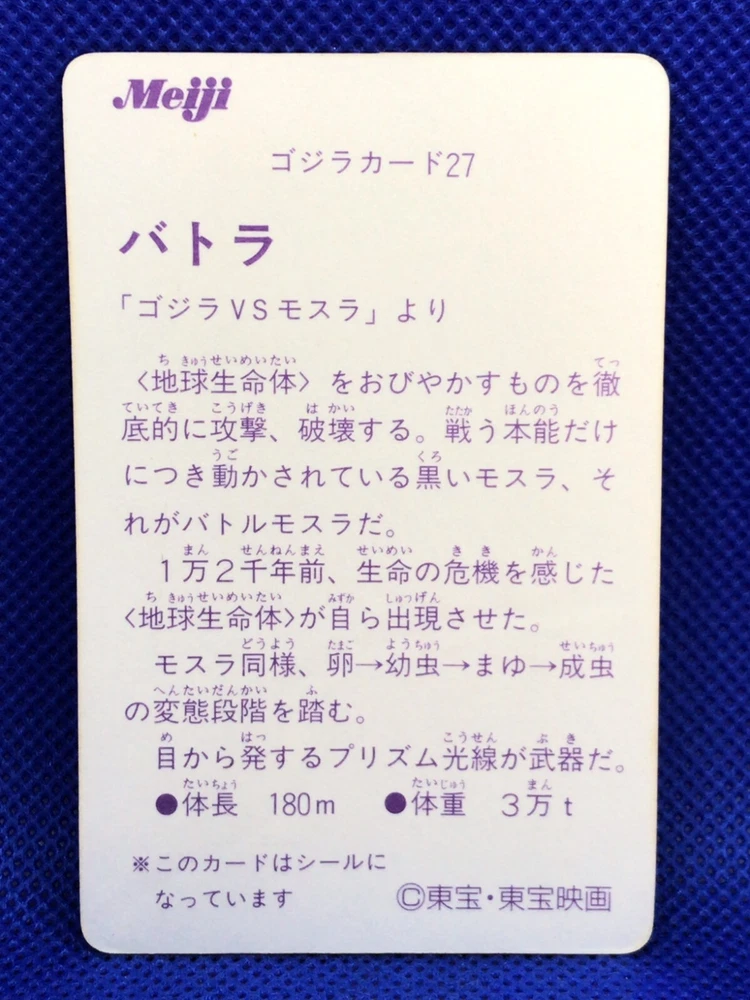 Meiji
ゴジラカード27
バトラ
「ゴジラVSモスラ」より
〈地球生命体〉をおびやかすものを徹
底的に攻撃、破壊する。戦う本能だけ
につき動かされている黒いモスラ、そ
れがバトルモスラだ。
1万2千年前、生命の危機を感じた
〈地球生命体〉が自ら出現させた。
モスラ同様、卵→幼虫→まゆ→成虫
の変態段階を踏む。
目から発するプリズム光線が武器だ。
●体長 180m ●体重 3万t
※このカードはシールに
なっています
©東宝・東宝映画